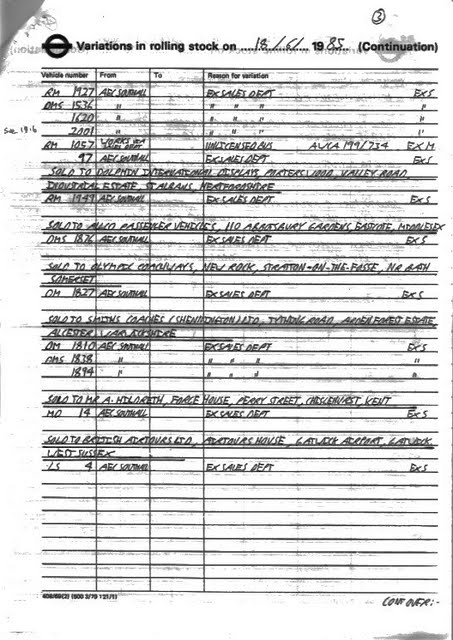 3
Variations in rolling stock on 18/6/ 1985 (Continuation)
Vehicle number From To Reason for variation
RM 1927 AEC SOUTHALL EX SALES DEPT EX S
DMS 1536 " " " " "
1620 " " " " "
See 19.6 2001 " " " " "
RM 1057 WORKS UNLICENSED BUS AVKA 199/734 EX M
97 AEC SOUTHALL EX SALES DEPT EX S
SOLD TO DOLPHIN INTERNATIONAL DISPLAYS, PORTERSWOOD, VALLEY ROAD,
INDUSTRIAL ESTATE, ST ALBANS, HERTFORDSHIRE
RM 1949 AEC SOUTHALL EX SALES DEPT EX S
SOLD TO PASSENGER VEHICLES, 110 GARDENS, EASTCOTE, MIDDLESEX
DMS 1876 AEC SOUTHALL EX SALES DEPT EX S
SOLD TO OLYMPIC COACHWAYS, NEW ROCK, STRATTON-ON-THE-FOSSE, NR BATH
SOMERSET
DM 1827 AEC SOUTHALL EX SALES DEPT EX S
SOLD TO SMITHS COACHES (SHENNINGTON) LTD, TYTHING ROAD, ARDEN FOREST ESTATE
ALCESTER WARWICKSHIRE
DM 1810 AEC SOUTHALL EX SALES DEPT EX S
DMS 1838 " " " " "
1894 " " " " "
SOLD TO MR A. HILDRETH, FORGE HOUSE, PERRY STREET, CHISLEHURST KENT
MD 14 AEC SOUTHALL EX SALES DEPT EX S
SOLD TO BRITISH AIRTOURS LTD, AIRTOURS HOUSE, GATWICK AIRPORT, GATWICK
WEST SUSSEX
LS 4 AEC SOUTHALL EX SALES DEPT EX S
408/68(2) (500 3/79 121/1)
CONT OVER:-